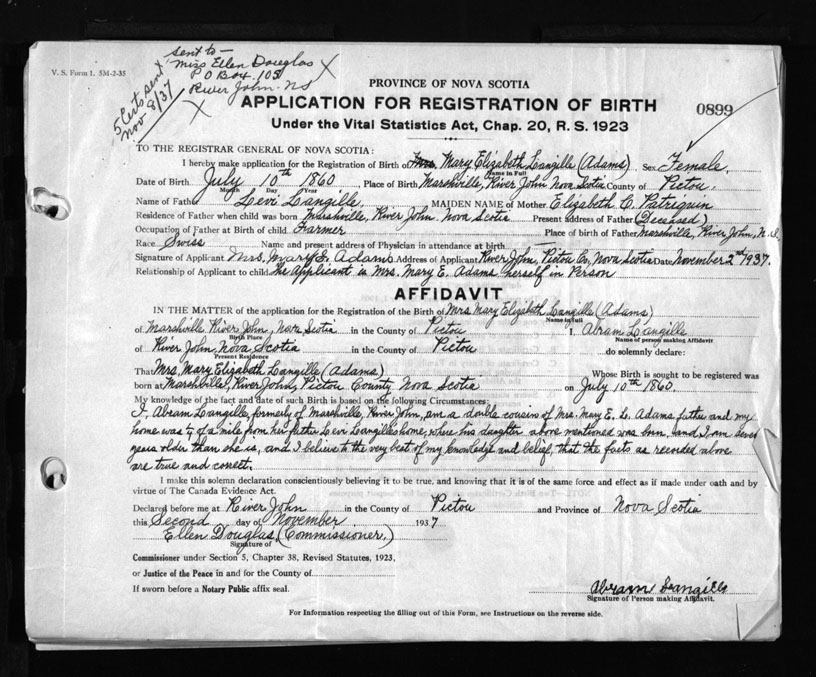 V. S. Form 1. 5M-2-35
sent to-
Miss Ellen Douglas
P O Box 103
River John. NS
5 Certs sent
Nov 8/37
PROVINCE OF NOVA SCOTIA
APPLICATION FOR REGISTRATION OF BIRTH
0899
Under the Vital Statistics Act, Chap. 20, R. S. 1923
TO THE REGISTRAR GENERAL OF NOVA SCOTIA:
I hereby make application for the Registration of Birth of Mrs. Mary Elizabeth Langille (Adams) Sex Female.
Name in Full
Date of Birth July 10th 1860 Place of Birth Marshville, River John Nova Scotia County of Pictou.
Month Day Year
Name of Father Levi Langille. MAIDEN NAME of Mother Elizabeth C. Patriquin
Residence of Father when child was born Marshville, River John Nova Scotia Present address of Father (Deceased)
Occupation of Father at Birth of child Farmer Place of birth of Father Marshville, River John, N.S.
Race Swiss Name and present address of Physician in attendance at birth
Signature of Applicant Mrs. Mary E. Adams Address of Applicant River John, Pictou Co, Nova Scotia Date November 2nd 1937.
Relationship of Applicant to child The Applicant is Mrs. Mary E. Adams herself in Person
AFFIDAVIT
IN THE MATTER of the application for the Registration of the Birth of Mrs. Mary Elizabeth Langille (Adams)
Name in full
of Marshville River John, Nova Scotia in the County of Pictou I, Abram Langille
Birth Place Name of person making Affidavit
of River John, Nova Scotia in the County of Pictou do solemnly declare:
Present Residence
That Mrs. Mary Elizabeth Langille (Adams) Whose Birth is sought to be registered was
born at Marshville, River John, Pictou County Nova Scotia on July 10th 1860.
My knowledge of the fact and date of such Birth is based on the following Circumstances:
I, Abram Langille, formerly of Marshville, River John, am a double cousin of Mrs. Mary E. L. Adams father and my
home was 1/4 of a mile from her father Levi Langilles home, where his daughter above mentioned was born, and I am seven
years older than she is, and I believe to the very best of my knowledge and belief, that the facts as recorded above
are true and correct.
I make this solemn declaration conscientiously believing it to be true, and knowing that it is of the same force and effect as if made under oath and by
virtue of The Canada Evidence Act.
Declared before me at River John in the County of Pictou and Province of Nova Scotia
this Second day of November 1937
Ellen Douglas, (Commissioner.)
Signature of
Commissioner under Section 5, Chapter 38, Revised Statutes, 1923,
or Justice of the Peace in and for the County of
If sworn before a Notary Public affix seal.
Abram Langille
Signature of Person making Affidavit.
For Information respecting the filling out of this Form, see Instructions on the reverse side.